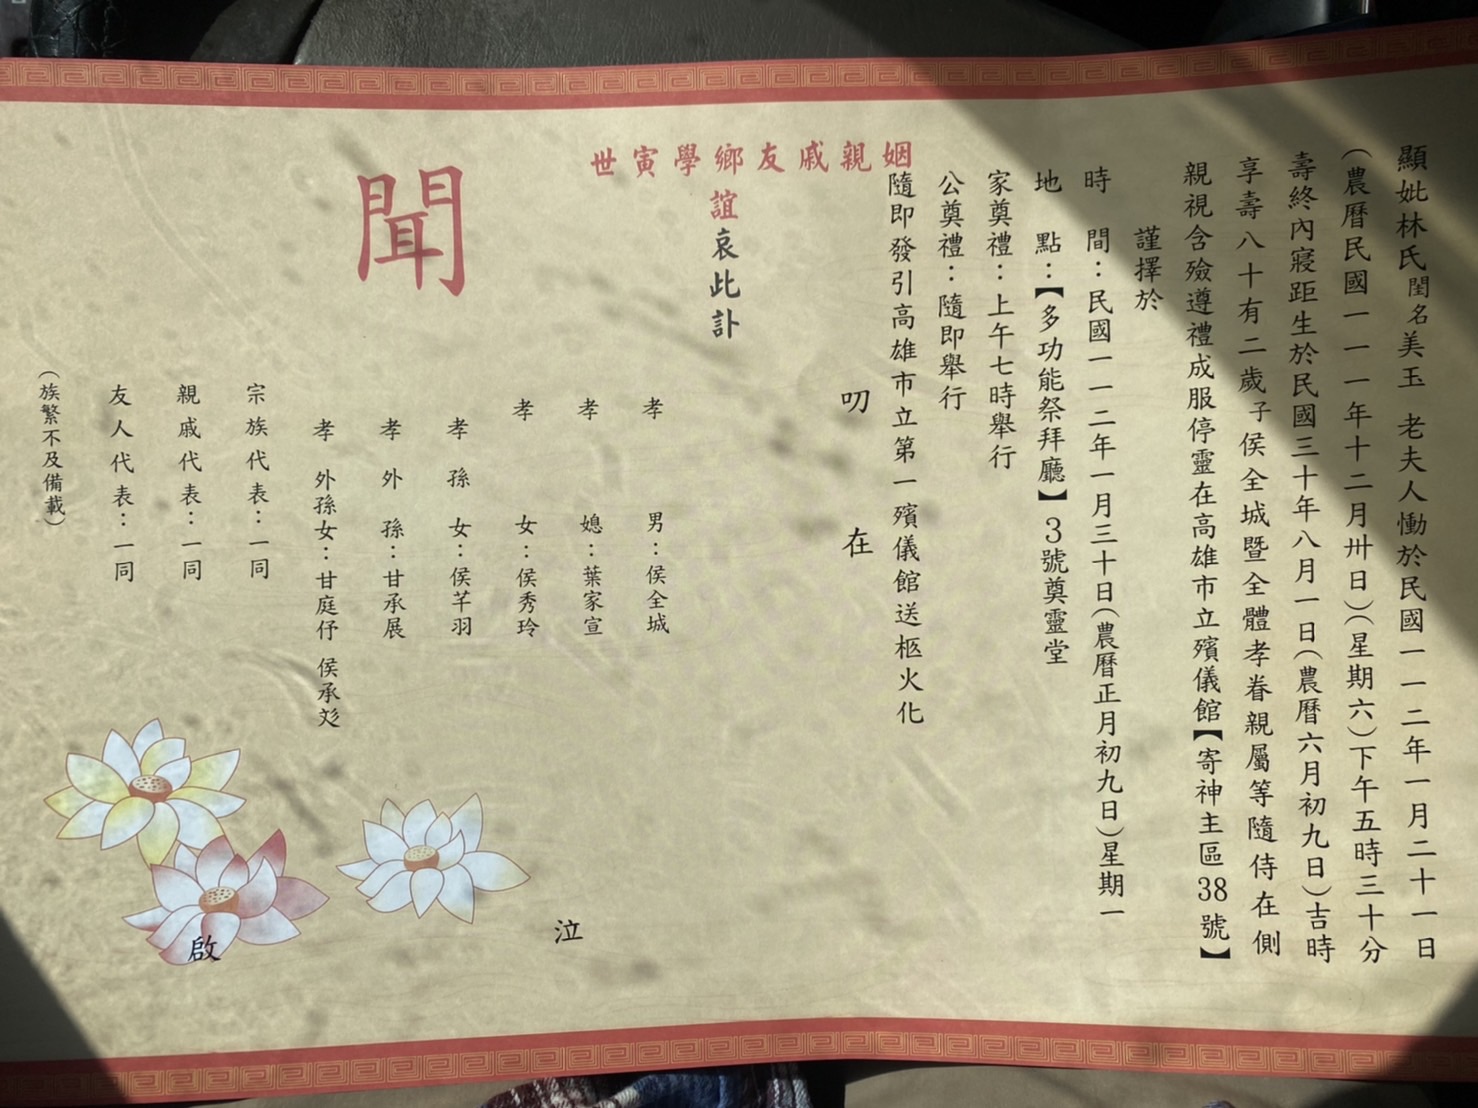 顯妣林氏閨名美玉 老夫人慟於民國一一二年一月二十一日
(農曆民國一一一年十二月卅日)(星期六)下午五時三十分
壽終內寢距生於民國三十年八月一日(農曆六月初九日)吉時
享壽八十有二歲子侯全城暨全體孝眷親屬等隨侍在側
親視含殮遵禮成服停靈在高雄市立殯儀館【寄神主區38號】
謹擇於
時 間：民國一一二年一月三十日(農曆正月初九日)星期一
地 點：【多功能祭拜廳】3號奠靈堂
家奠禮：上午七時舉行
公奠禮：隨即舉行
隨即發引高雄市立第一殯儀館送柩火化
叨 在
姻親戚友鄉學寅世
誼哀此訃
聞
孝 男：侯全城
孝 媳：葉家宣
孝 女：侯秀玲
孝 孫 女：侯芊羽
孝 外 孫：甘承展
孝 外孫女：甘庭伃 侯承彣
宗族代表：一同
親戚代表：一同
友人代表：一同
(族繁不及備載)
泣 啟